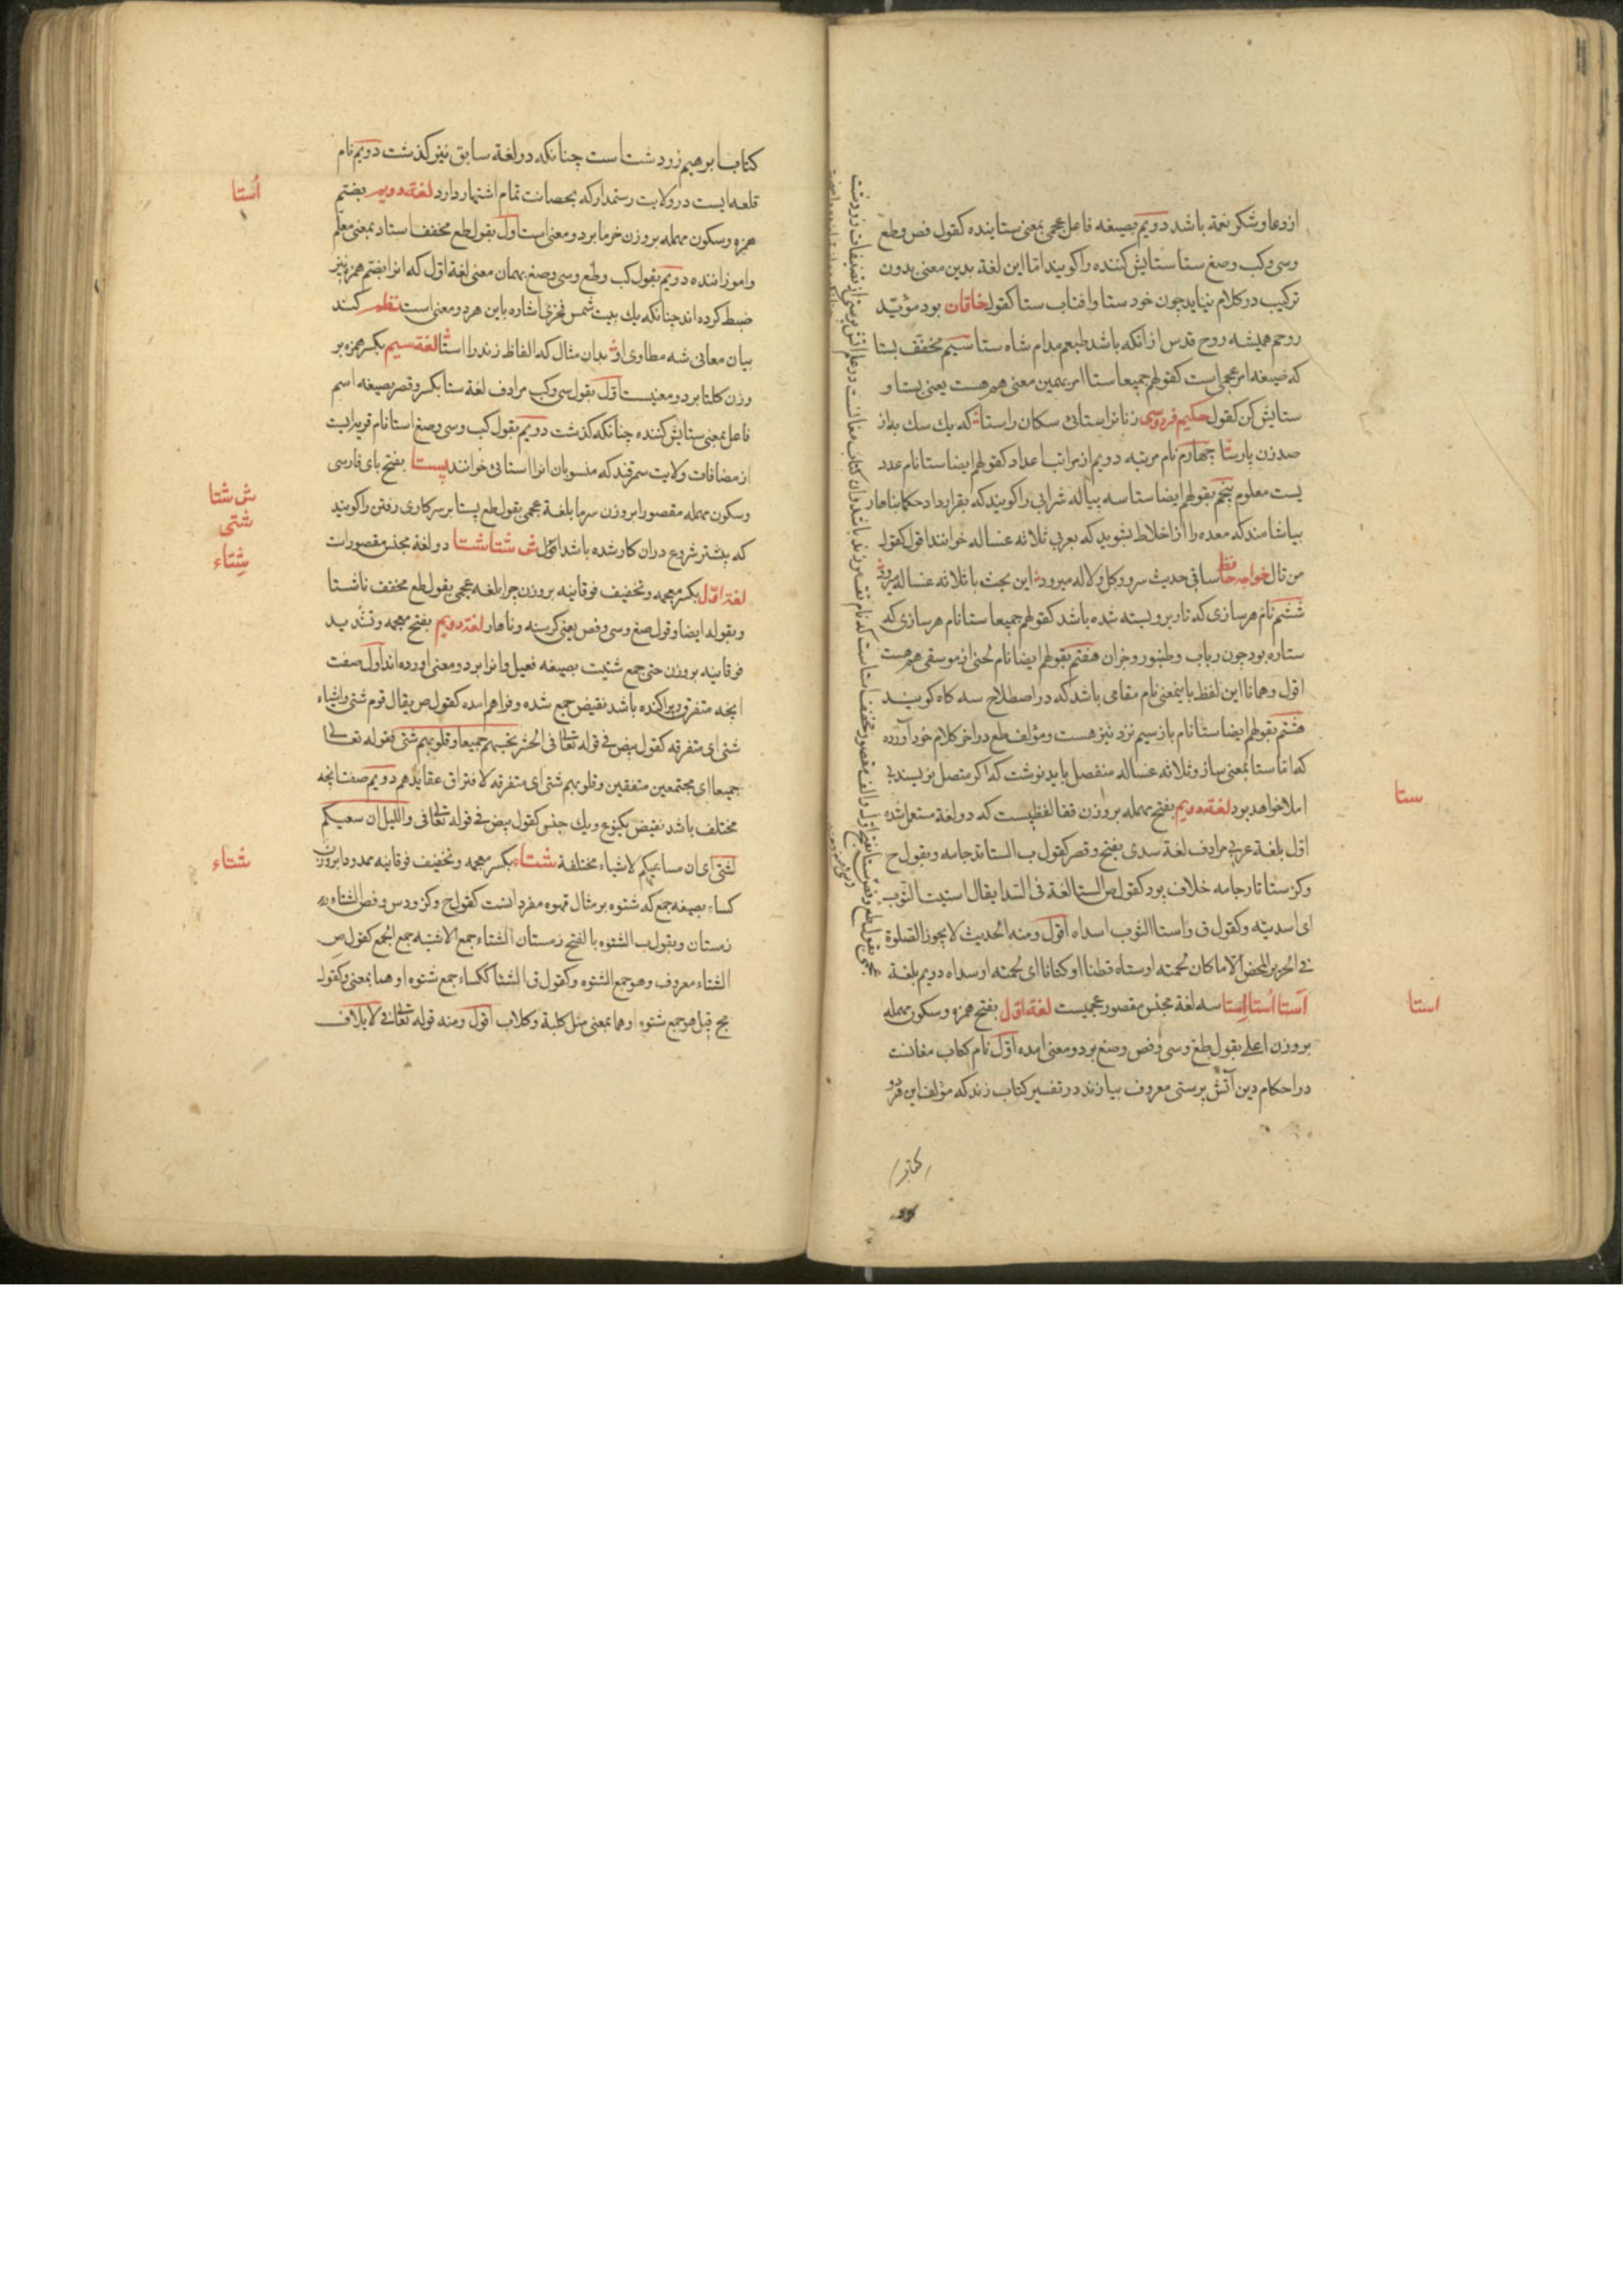 ازدعا و شکر نعمة باشد دویم بصیغه فاعل عجمی بمعنی ستاینده کقول فص و طع
وسی و کب و صغ ستا ستایش کننده را کویند اما این لغة بدین معنی بدون
ترکیب در کلام نیاید چون خود ستا و افتاب ستا کقول خاقان بود مؤیّد
روحم همیشه روح قدس ازانکه باشد طبعم مدام شاه ستا سیم مخفف بستا
که صیغه امر عجمی است کقولهم جمیعا ستا امر بهمین معنی هم هست یعنی بستا و
ستایش کن کقول حکیم فردوسی زنانرا ستائی سکان را ستا که یك سك به از
صد زن پارسا چهارم نام مرتبه دویم از مراتب اعداد کقولهم ایضا ستا نام عدد
بست معلوم پنجم بقولهم ایضا ستا سه پیاله شرابی را کویند که بقرارداد حکما بناهار
بیاشامند که معده را از اخلاط بشوید که بعربی ثلاثه غساله خوانند اقول کقول
من قال خواجه حافظ ساقی حدیث سرو و کل و لاله میرود این بحث با ثلاثه غساله میرود
ششم نام هر سازی که تار برو بسته شده باشد کقولهم جمیعا ستا نام هر سازی که
ستاره بود چون رباب و طنبور و جزان هفتم بقولهم ایضا نام لحنی از موسقی هم هست
اقول و همانا این لفظ باینمعنی نام مقامی باشد که در اصطلاح سه کاه کویند
هشتم بقولهم ایضا ستا نام بازسیم نرد نیز هست و مؤلف طع در اخر کلام خود آورده
که اما ستا بمعنی ساز و ثلاثه غساله منفصل باید نوشت که اکر متصل نویسند بی
املا خواهد بود لغة دویم بفتح مهمله بر وزن قفا لفظیست که در لغة مستعمل شده
اول بلغة عربی مرادف لغة سدی بفتح و قصر کقول ب الستا تد جامه و بقول ح
و کز ستا تار جامه خلاف پود کقول ص الستا لغة فی السدا یقال استیت الثوب
ای اسدیته و کقول ق و استا الثوب اسداه اقول و منه الحدیث لا یجوز الصلوة
فی الحریر المحض الا ما کان لحمته او ستاه قطنا او کتانا ای لحمته او سداه دویم بلغة
اَستا اُستا اِستا سه لغة مجنس مقصور عجمیست لغة اول بفتح همزه و سکون مهمله
بر وزن اعلی بقول طع و سی و فص و صغ بر دو معنی امده اول نام کتاب مغانست
در احکام دین آتش پرستی معروف بپازند در تفسیر کتاب زند که مؤلف این هر دو
ستا
استا
کتاب
کتاب ابرهیم زردشت است چنانکه در لغة سابق نیز کذشت دویم نام
قلعه ایست در ولایت رستمدار که بحصانت تمام اشتهار دارد لغة دویم بضم
همزه و سکون مهمله بر وزن خرما بر دو معنی است اول بقول طع مخفف استاد بمعنی معلم
و اموزاننده دویم بقول کب و طع و سی و صغ بهمان معنی لغة اول که انرا بضم همزه نیز
ضبط کرده اند چنانکه یك بیت شمس فخری اشاره باین هر دو معنی است نظم کند
بیان معانی شه مطاوی او بدان مثال که الفاظ زند را استا لغة سیم بکسر همزه بر
وزن کلتا بر دو معنیست اول بقول سی و کب مرادف لغة ستا بکسر و قصر بصیغه اسم
فاعل بمعنی ستایش کننده چنانکه کذشت دویم بقول کب و سی و صغ استا نام قریه ایست
از مضافات ولایت سمرقند که منسوبان انرا استائی خوانند پستا بفتح بای فارسی
و سکون مهمله مقصورا بر وزن سرما بلغة عجمی بقول طع پستا بر سر کاری رفتن را کویند
که پیشتر شروع دران کار شده باشد اول ش شتا شتا دو لغة مجنس مقصورات
لغة اول بکسر معجمه و تخفیف فوقانیه بر وزن چرا بلغه عجمی بقول طع مخفف ناشتا
و بقوله ایضا و قول صغ و سی و فص یعنی کرسنه و ناهار لغة دویم بفتح معجمه و تشدید
فوقانیه بر وزن حتی جمع شتیت بصیغه فعیل و انرا بر دو معنی اورده اند اول صفت
انچه متفرق و پراکنده باشد نقیض جمع شده و فراهم امده کقول ص یقال قوم شتی و اشیاء
شتی ای متفرقه کقول بیض فی قوله تعالی فی الحشر تحسبهم جمیعا و قلوبهم شتی فقوله تعالی
جمیعا ای مجتمعین متفقین و قلوبهم شتی ای متفرقه لافتراق عقایدهم دویم صفت انچه
مختلف باشد نقیض یکنوع و یك جنس کقول بیض فی قوله تعالی فی واللیل ان سعیکم
لشتی ای ان مساعیکم لاشیاء مختلفة شتاء بکسر معجمه و تخفیف فوقانیه ممدودا بر وزن
کساء بصیغه جمع که شتوه بر مثال قهوه مفرد انست کقول ح و کز و دس و فص الشتاء
زمستان و بقول ب الشتوه بالفتح زمستان الشتاء جمع الاشتیه جمع الجمع کقول ص
الشتاء معروف و هو جمع الشتوه و کقول ق الشتا ککساء جمع شتوه او هما بمعنی و کقول
مج قیل هو جمع شتوه او هما بمعنی مثل کلبة و کلاب اقول و منه قوله تعالی فی لایلاف
اُستا
ش شتا
شتی
شتاء
شتاء